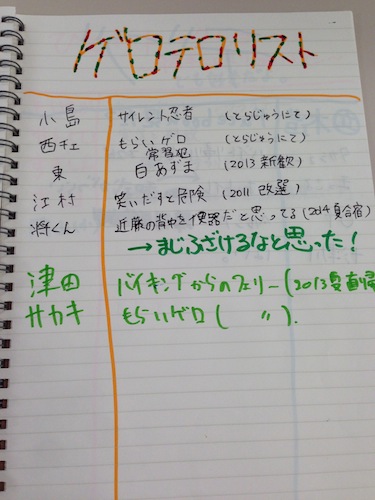 ゲロテロリスト
小島 サイレント忍者 (とらじゅうにて)
西チェ もらいゲロ (とらじゅうにて)
常習犯
東 白あずま (2013 新歓)
江村 笑いだすと危険 (2011 改選)
将くん 近藤の背中を便器だと思ってる (2014夏合宿)
→まじふざけるなと思った!
津田 バイキングからのフェリー (2013夏直帰
サカキ もらいゲロ ( 〃 ).